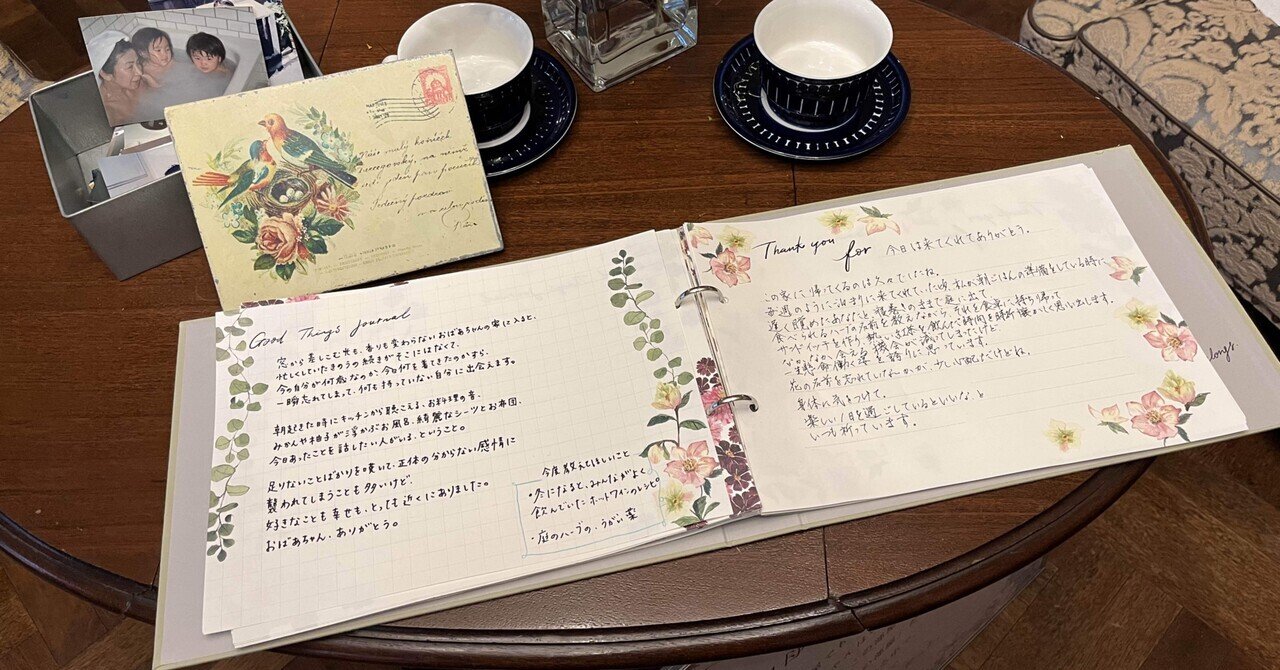 Good Things Journal
窓から差しこむ光も、香りも変わらないおばあちゃんの家に入ると、
忙しくしていたきのうの続きがそこにはなくて、
今の自分が何歳なのか、今日何を着てきたのかすら、
一瞬忘れてしまって、何も持っていない自分に出会えます。
朝起きた時にキッチンから聴こえる、お料理の音、
みかんや柚子が浮かぶお風呂、綺麗なシーツとお布団、
今日あったことを話したい人がいる、ということ。
足りないことばかりを嘆いて、正体の分からない感情に
襲われてしまうことも多いけど
好きなことも幸せも、とっても近くにありました。
おばあちゃん、ありがとう。
今度教えてほしいこと
・冬になると、みんながよく
飲んでいたホットワインのレシピ
・庭のハーブの、うがい薬
Thank you for 今日は来てくれてありがとう。
この家に帰ってくるのは久々でしたね。
毎週のように泊まりに来てくれていた頃、私が朝ごはんの準備をしている時に、
遅く起きたあなたと、寝巻のままで庭に出て
食べられるハーブの名前を教えながら、それを食卓に持ち帰って
サンドイッチを作り、熱い紅茶を飲んだ時間を時折懐かしく思い出します。
なかなか会えない時間が流れてしまったけど
一生懸命働く姿を誇りに思っています。
花の名前を忘れていないかが、少し心配だけどね。
身体に気をつけて。
楽しい1日を過ごしているといいな、と
いつも祈っています。